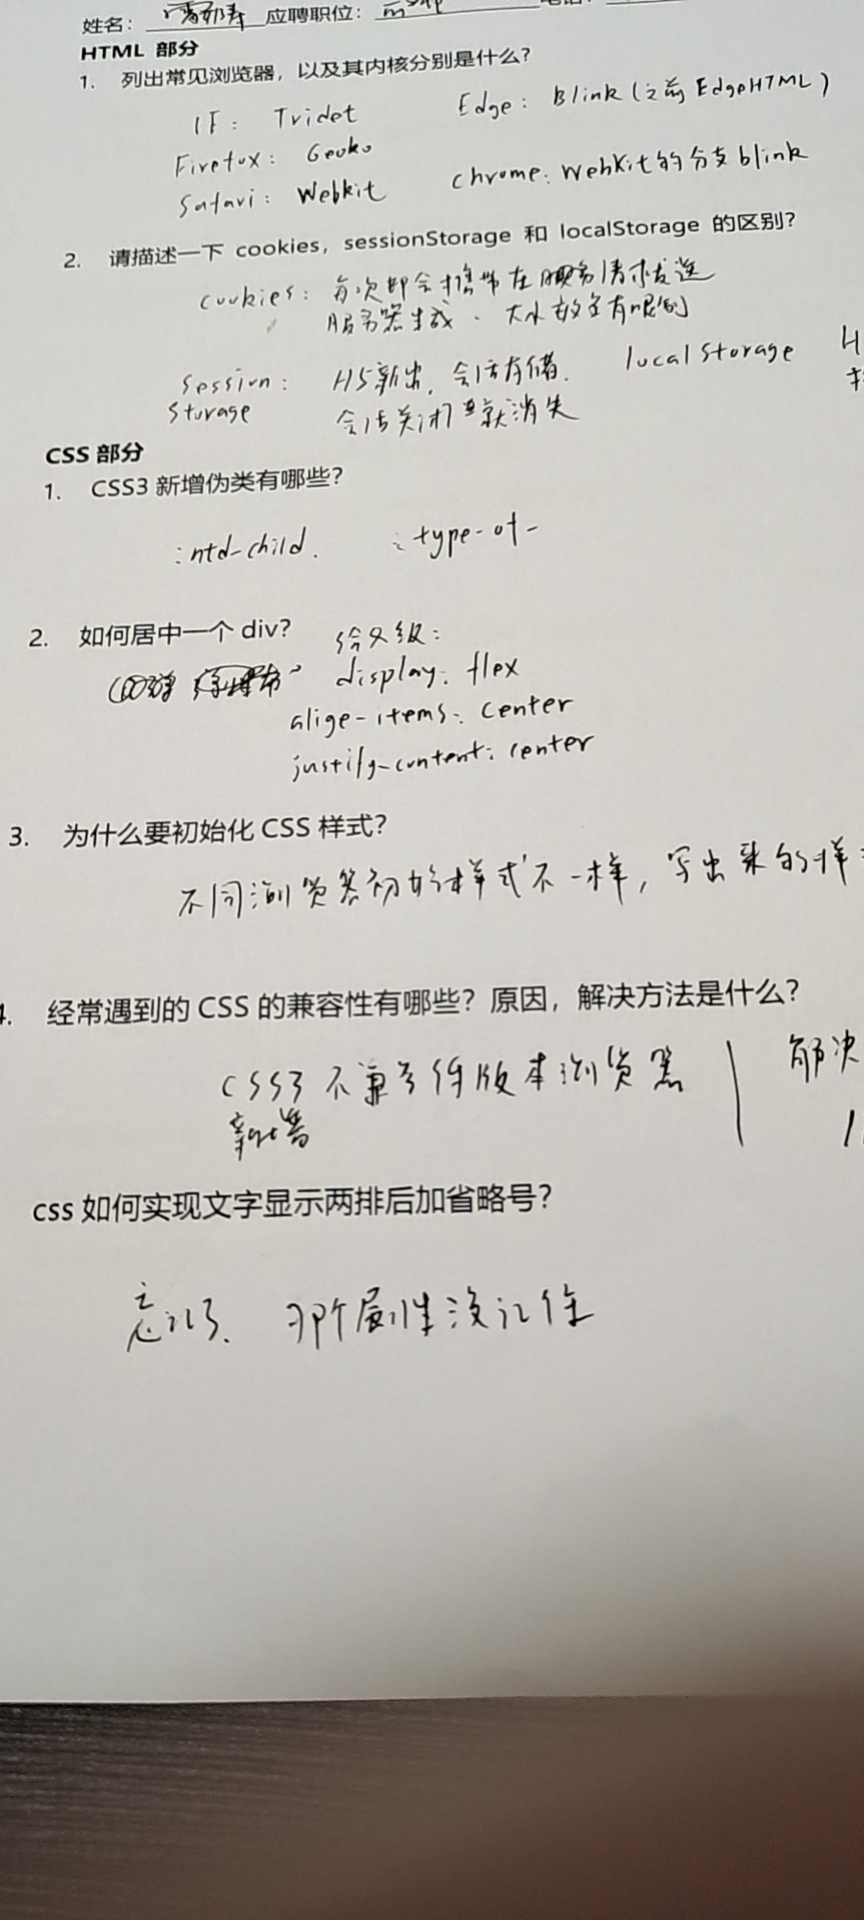 姓名： 应聘职位：
HTML 部分
1. 列出常见浏览器，以及其内核分别是什么？
IE： Tridet Edge： Blink（之前 EdgeHTML）
Firefox： Geoko
Safari： Webkit chrome：WebKit的分支blink
2. 请描述一下 cookies，sessionStorage 和 localStorage 的区别？
cookies： 每次都会携带在服务请求发送
服务器生成、大小数量有限制
Session： H5新出，会话存储． local Storage H
Storage 会话关闭 就消失
CSS 部分
1. CSS3 新增伪类有哪些？
:ntd-child. :type-of-
2. 如何居中一个 div？ 给父级：
display: flex
alige-items: center
justify-content: center
3. 为什么要初始化 CSS 样式？
不同浏览器初始样式不一样，写出来的样
4. 经常遇到的 CSS 的兼容性有哪些？原因，解决方法是什么？
CSS3 不兼容低版本浏览器 解决
css 如何实现文字显示两排后加省略号？
忘记了．那个属性没记住